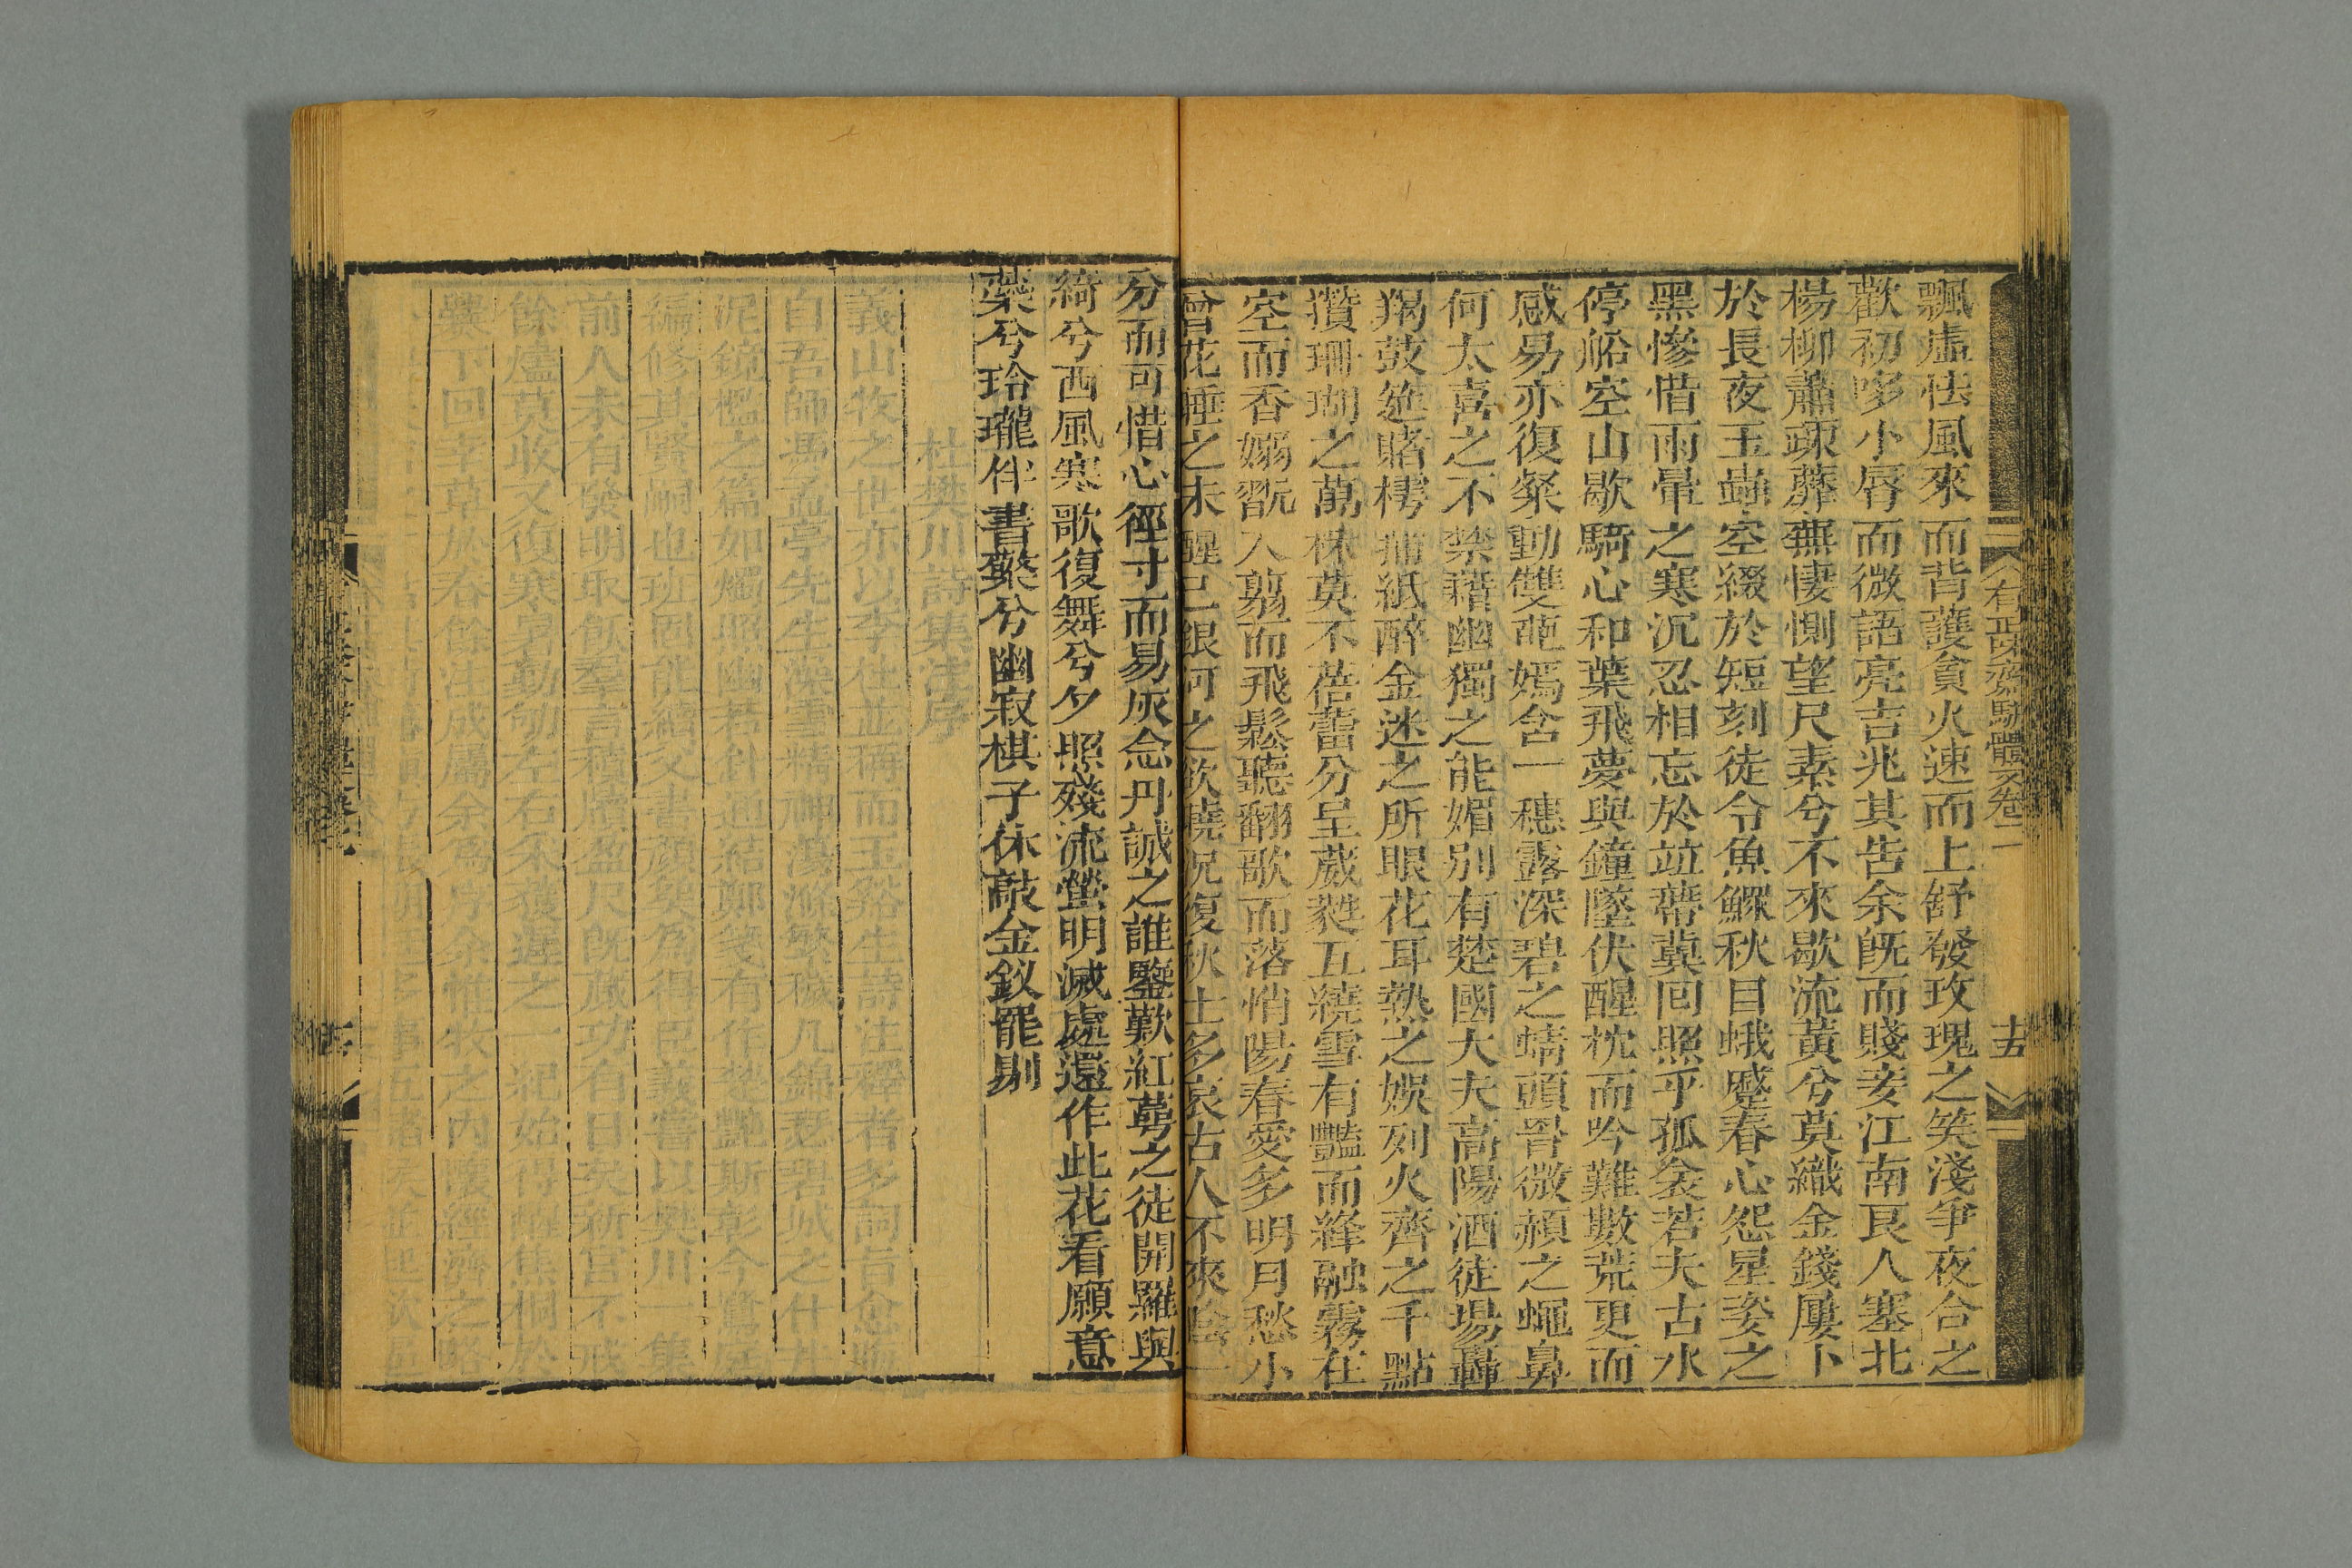 飄虛怯風來而背護貪火速而上舒發玫瑰之笑淺爭夜合之
歡初哆小脣而微語亮吉兆其告余旣而賤妾江南艮人塞北
楊柳蕭疎蘼蕪悽惻望尺素兮不來歇流黃兮莫織金錢屢卜
於長夜玉齒空綴於短刻徒令魚鰥秋目蛾蹙春心怨星妾之
黑慘惜雨暈之寒沉忍相忘於竝蒂冀回照乎孤衾若夫古水
停船空山歇騎心和葉飛夢與鐘墜伏醒枕而吟難數荒更而
感易亦復粲動雙葩嫣含一穗露深碧之蜻頭胃微赬之蠅鼻
何太喜之不禁藉幽獨之能媚別有楚國大夫高陽酒徒場轟
羯鼓筵賭樗蒱紙醉金迷之所眼花耳熱之娛列火齊之千點
攢珊瑚之萬株莫不蓓蕾分呈葳蕤五繞雪有豔而絳融霧在
空而香嫋翫入翦而飛鬆聽翻歌而落悄陽春愛多明月愁小
曾花睡之未醒已銀河之欲曉況復秋士多哀古人不來陰一
有正味齋駢體文卷二
十五
分而可惜心徑寸而易灰念丹誠之誰鑒歎紅蕚之徒開羅與
綺兮西風寒歌復舞兮夕照殘流螢明滅處還作此花看願意
蘂兮玲瓏伴書檠兮幽寂棋子休敲金釵罷剔
杜樊川詩集注序
義山牧之世亦以李杜並稱而玉谿生詩注釋者多詞旨愈晦
自吾師馮孟亭先生澡雪精神湯滌繁穢凡錦瑟碧城之什
泥鏡檻之篇如燭照幽若針迎結鄭箋有作楚豔斯彰今鷺庭
編修其賢嗣也班固能續父書顏矣為得臣義嘗以樊川一集
前人未有發明取飫羣言積牘盈尺旣蕆功有日矣祈宮不戒
餘爐莫收又復寒窗勤劬左右采獲遲之一紀始得幄焦桐於
爨下回宰草於春餘注成屬余為序余惟牧之內懷經濟之略